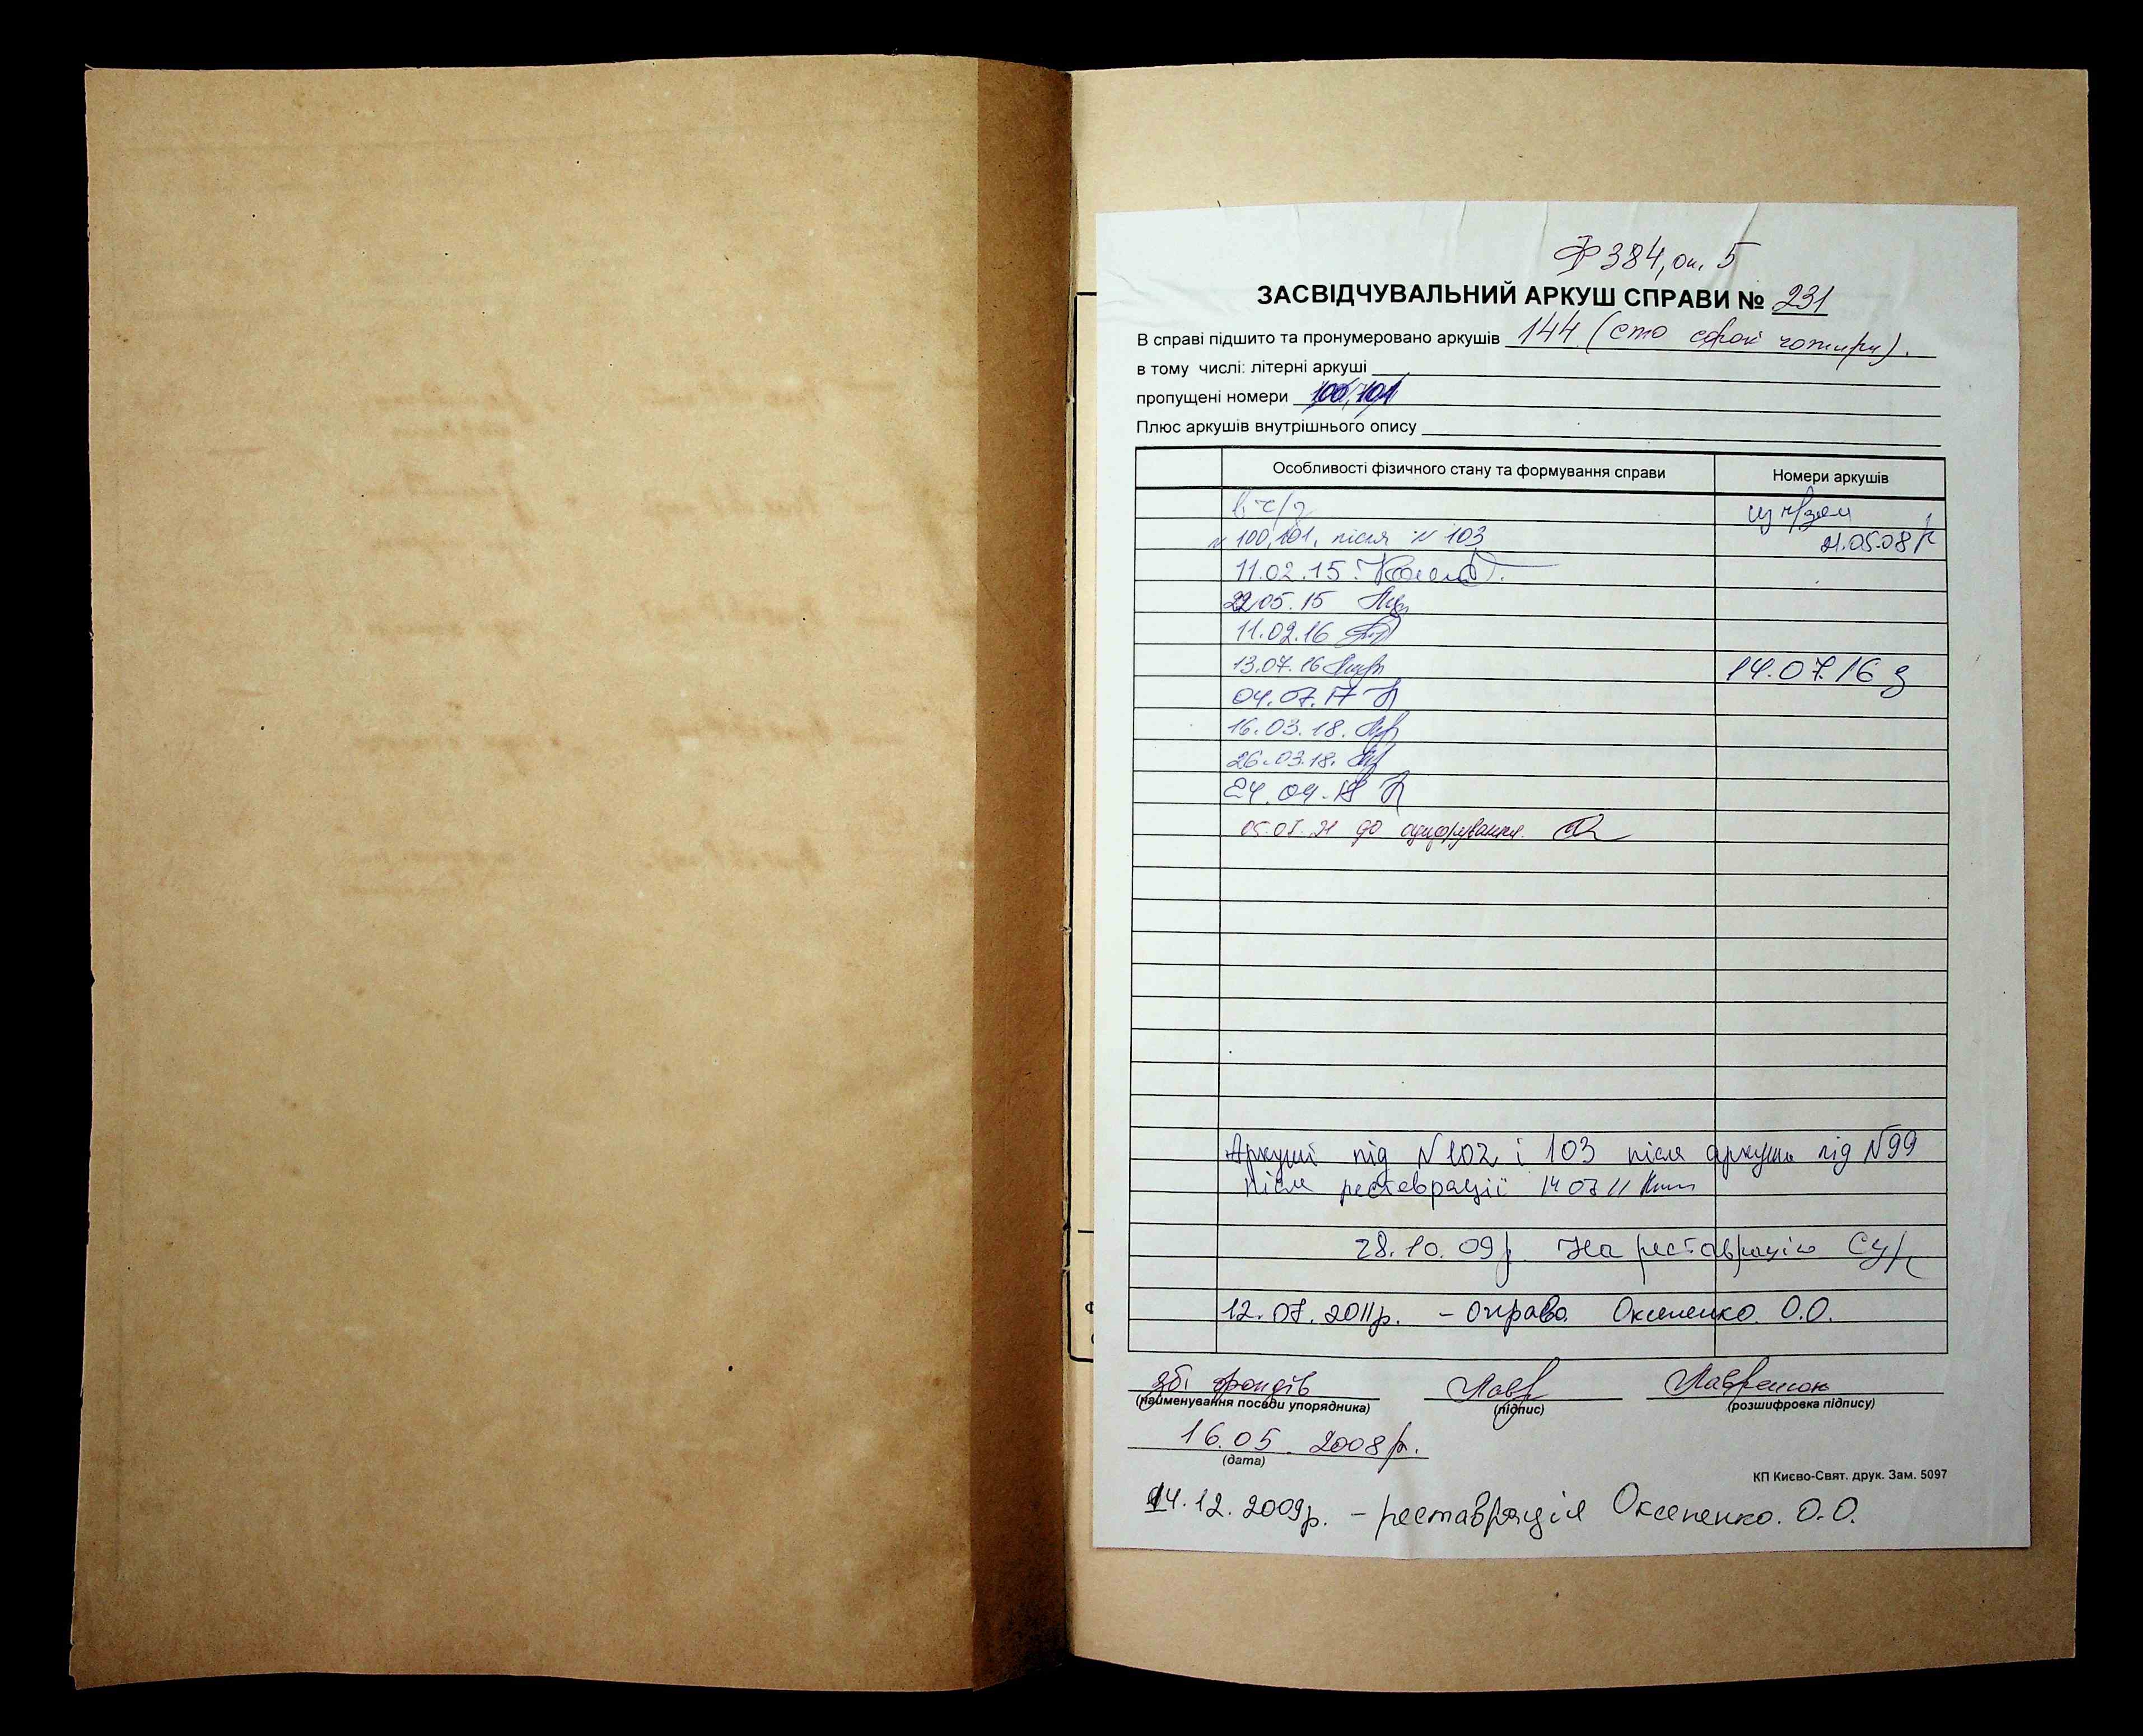 Ф 384, оп. 5
ЗАСВІДЧУВАЛЬНИЙ АРКУШ СПРАВИ № 231
В справі підшито та пронумеровано аркушів 144 (сто сорок чотири).
в тому числі: літерні аркуші
пропущені номери 100, 101
Плюс аркушів внутрішнього опису
Особливості фізичного стану та формування справи Номери аркушів
в ч/з
из ч/зем
№ 100, 101, після № 103 21.05.08
11.02.15
22.05.15
11.02.16
13.07.16 14.07.16
04.07.17
16.03.18.
26.03.18.
24.04.18
05.01.21 до оцифрування.
Аркуші під №102 і 103 після аркуша під №99
після реставрації 14 07 11
28.10.09р. На реставрацію
12.07.2011р. – оправа Оксененко. О.О.
зб. фондів Лавр
(найменування посади упорядника) (підпис) (розшифровка підпису)
16.05.2008р.
(дата)
КП Києво-Свят. друк. Зам. 5097
14.12.2009р. – реставрація Оксененко. О.О.